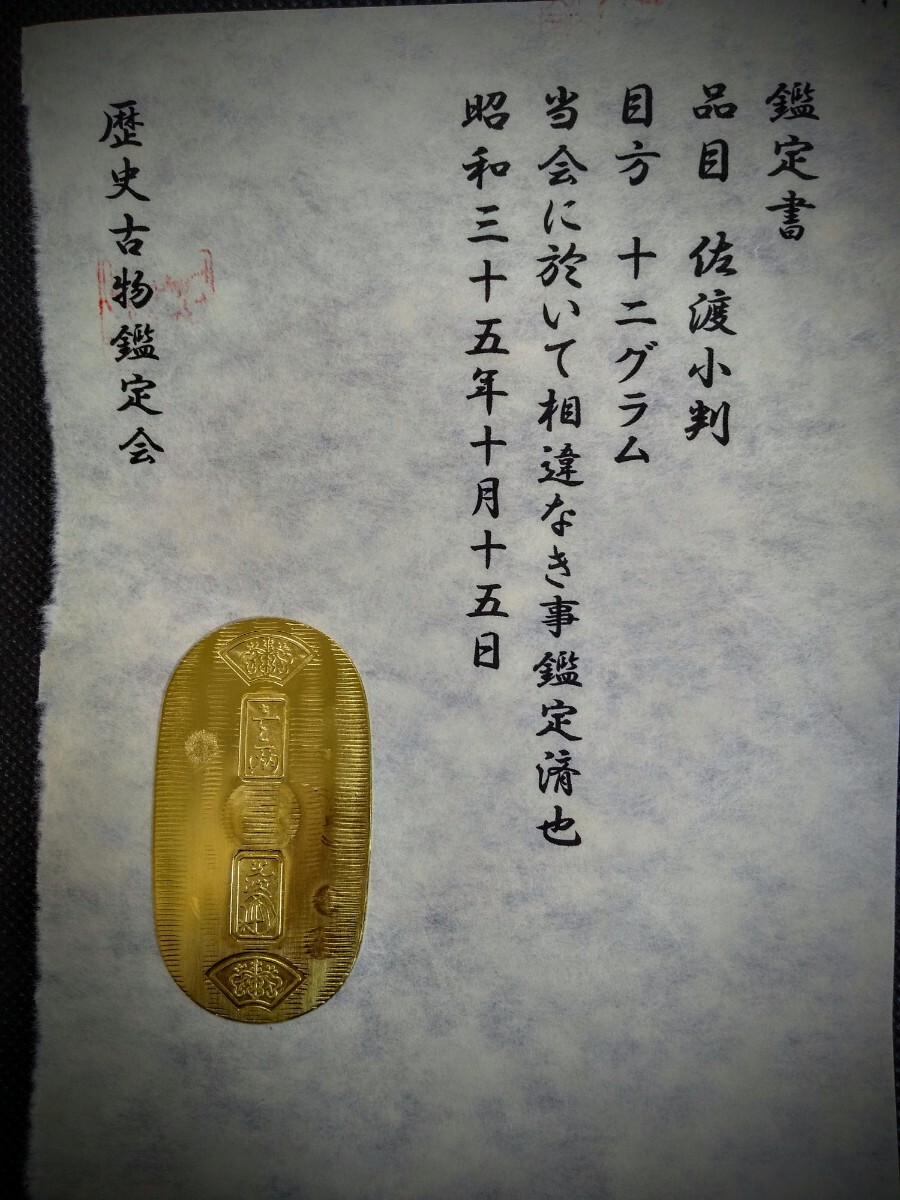 鑑定書
品目 佐渡小判
目方 十二グラム
当会に於いて相違なき事鑑定済也
昭和三十五年十月十五日
歴史古物鑑定会
壹両
光次